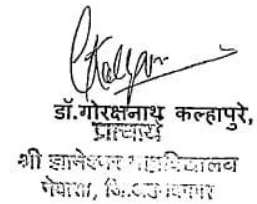 डॉ.गोरक्षनाथ कल्हापुरे,
प्राचार्य
श्री ज्ञानेश्वर महाविद्यालय
नेवासा, जि.अहमदनगर